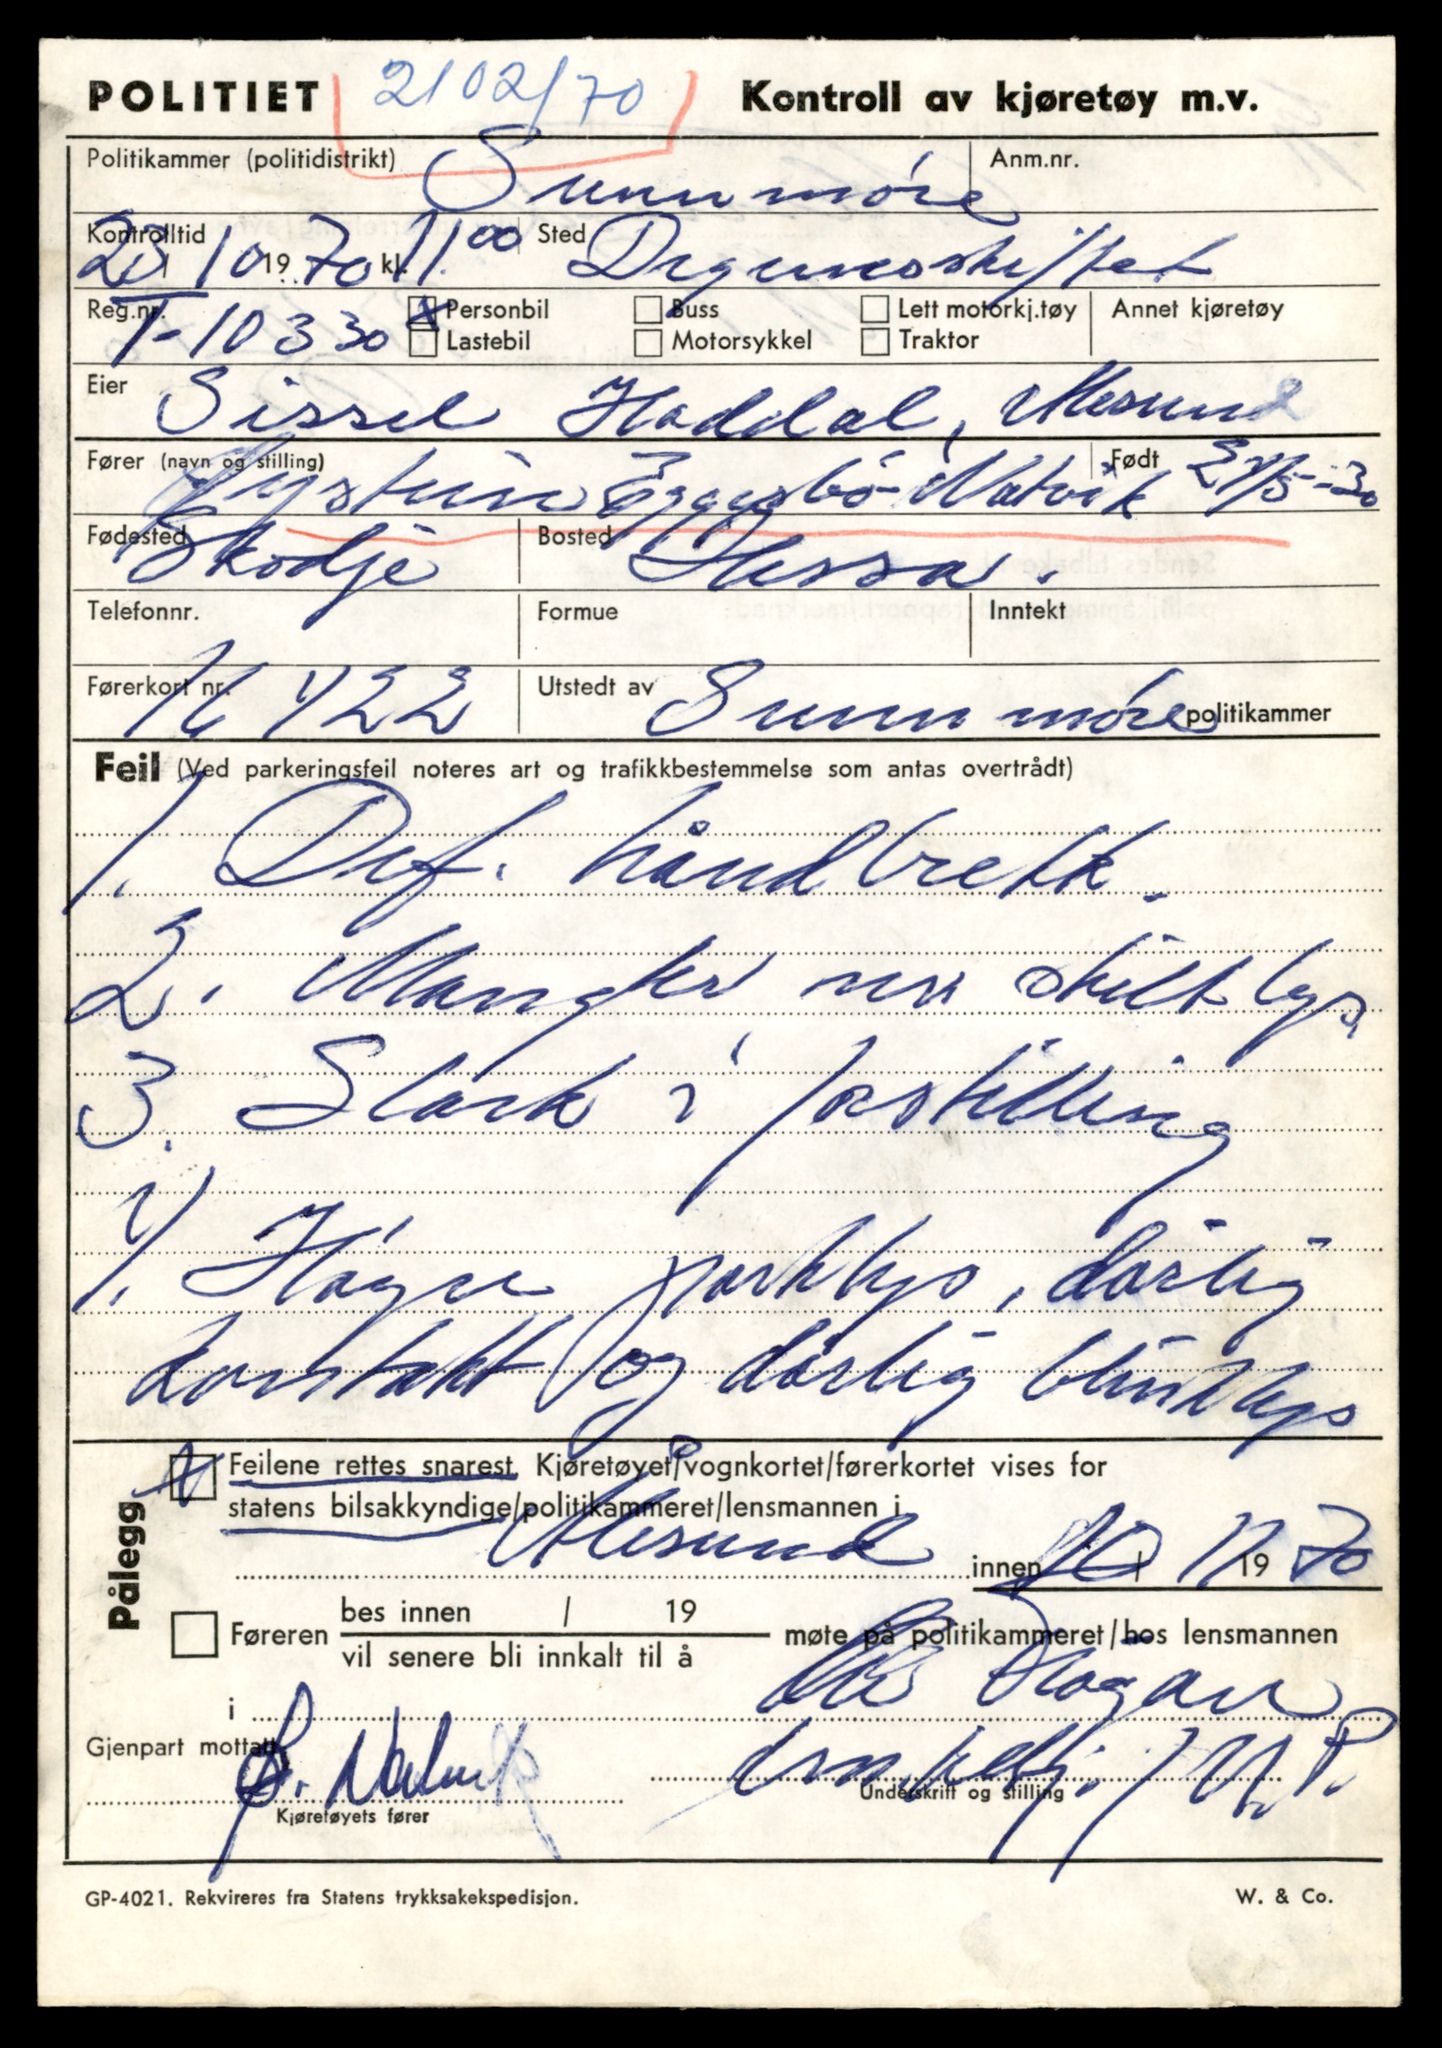 POLITIET 2102/70 Kontroll av kjøretøy m.v.
Politikammer (politidistrikt) Sunnmöre Anm.nr.
Kontrolltid 23/10 1970 kl. 11.00 Sted
Reg.nr. T-10330 x Personbil Buss Lett motorkj.tøy Annet kjøretøy
Lastebil Motorsykkel Traktor
Eier Sissel Haddal, Ålesund
Fører (navn og stilling) Öystein Eggesbö Natvik Født 27/5-30
Fødested Skodje Bosted Hessa.
Telefonnr. Formue Inntekt
Førerkort nr. 16422 Utstedt av Sunnmöre politikammer
Feil (Ved parkeringsfeil noteres art og trafikkbestemmelse som antas overtrådt)
1. Def. håndbrekk.
2. Mangler nr. skilt lys.
3. Slark i forstilling
4. Högre parklys, dårlig
kontakt og dårlig blinklys
Pålegg x Feilene rettes snarest. Kjøretøyet/vognkortet/førerkortet vises for
statens bilsakkyndige/politikammeret/lensmannen i
Ålesund innen 10/11 1970
Føreren bes innen / 19 møte på politikammeret/hos lensmannen
vil senere bli innkalt til å
i
Gjenpart mottatt
Ö. Natvik
Kjøretøyets fører Underskrift og stilling
GP-4021. Rekvireres fra Statens trykksakekspedisjon. W. & Co.